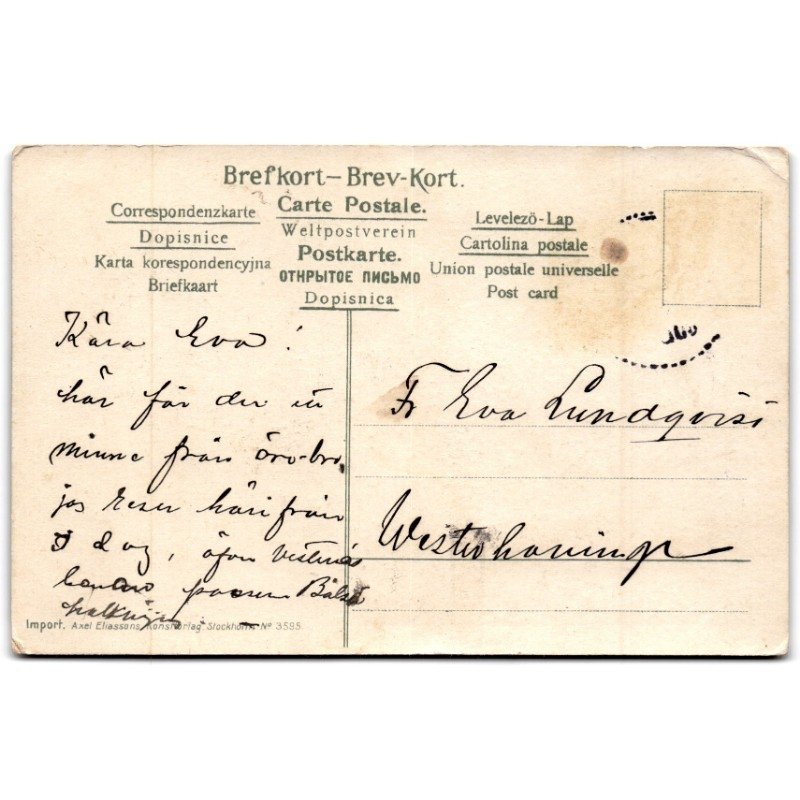 Brefkort—Brev-Kort.
Correspondenzkarte
Dopisnice
Karta korespondencyjna
Briefkaart
Carte Postale.
Weltpostverein
Postkarte.
ОТКРЫТОЕ ПИСЬМО
Dopisnica
Levelezö-Lap
Cartolina postale
Union postale universelle
Post card
Kära Eva!
här får du ett
minne från örebro,
jag reser härifrån
i dag, öfver
Fr Eva Lundqvist
Westerhaninge
Import. Axel Eliassons Konstförlag. Stockholm. Nº 3585.